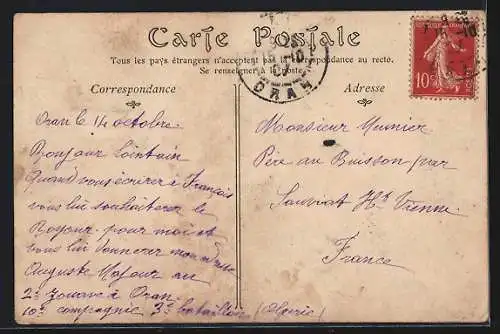 Carte Postale
Tous les pays étrangers n'acceptent pas la correspondance au recto.
Se renseigner à la poste.
Correspondance
Oran le 14 octobre
Bonjour lointain
Quand vous écrirer à François
vous lui souhaiterer le
Bonjour pour moi et
vous lui donnerer mon adresse
Auguste au
2e Zouave à Oran
10e compagnie 3e bataillon (Algérie)
Adresse
Monsieur Meunier
Père au Buisson par
Sauviat Hte Vienne
France
ORAN
10